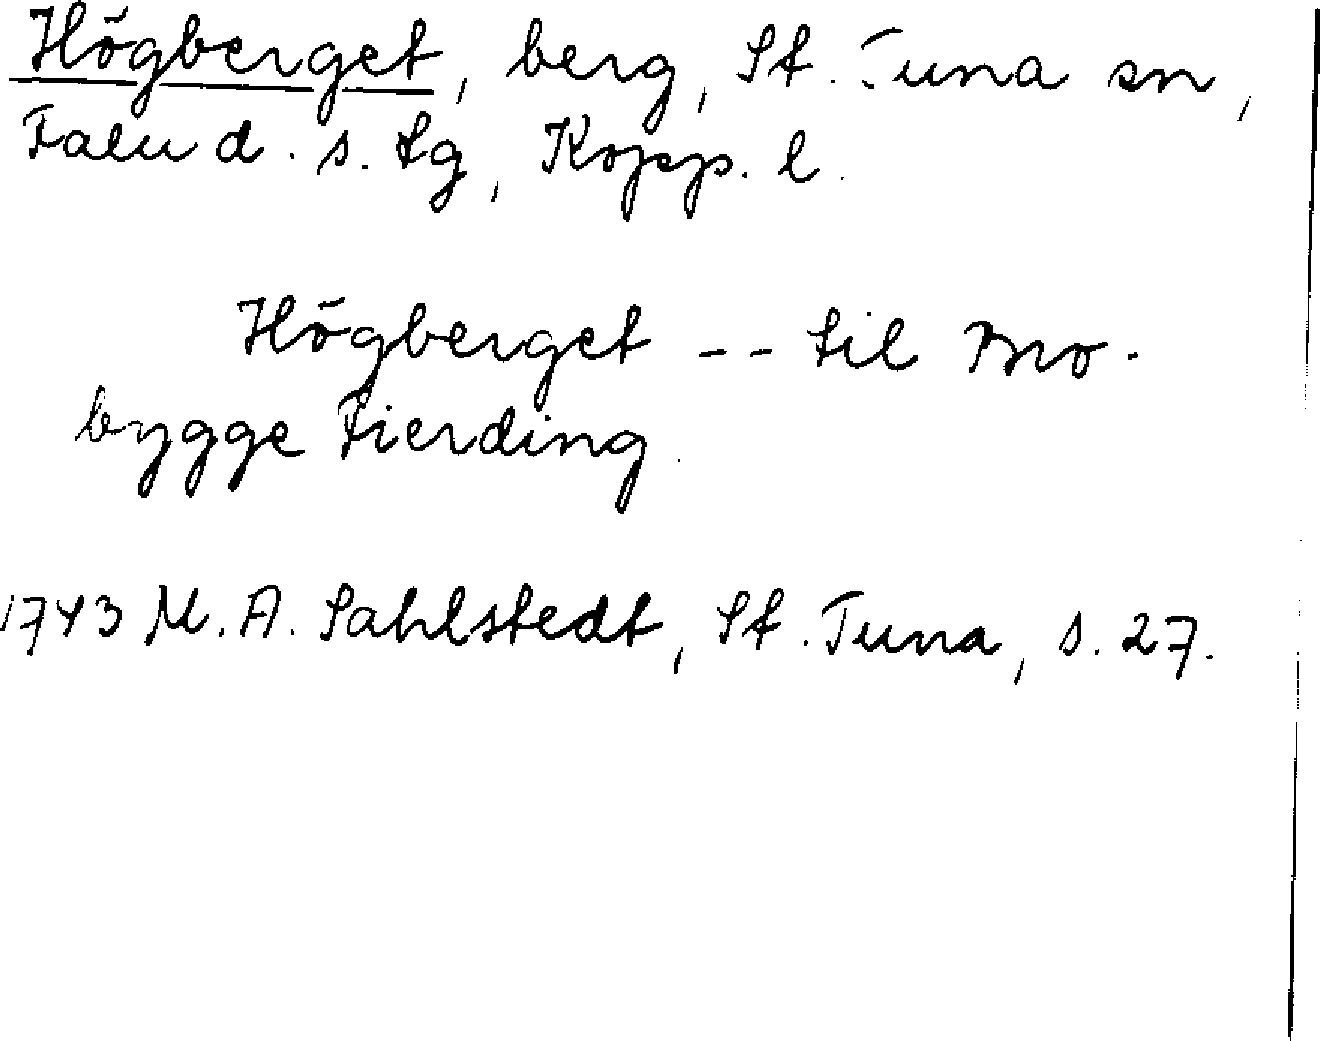 Högberget, berg, St. Tuna sn,
Falu d. s. tg, Kopp. l.
Högberget -- til Bro-
bygge Fierding.
1743 M. A. Sahlstedt, St. Tuna, s. 27.